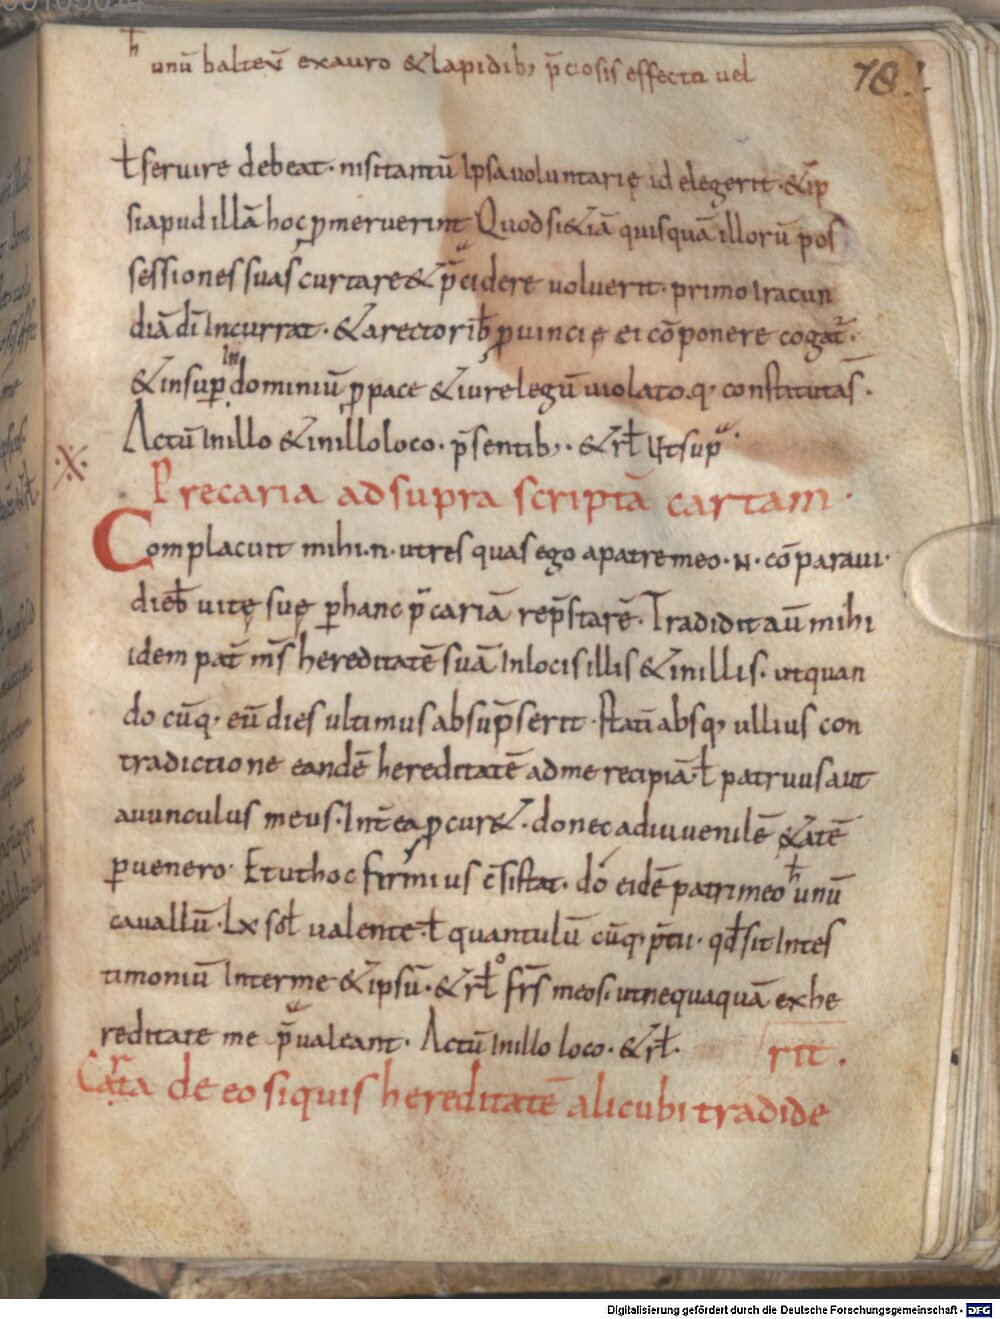 unū balteū exauro &lapidib; p̄ciosis effectū uel
78.
ł seruire debeat· nisitantū Ipsauoluntarię id elegerit·&ip
siapud illā hoc ꝓmeruerint Quodsi&iā quisquā illorū pos
sessiones suas curtare& p̄cidere uoluerit· primo Iracun
diā dī Incurrat· &arectorib; ꝓuincię ei cōponere cogat̄·
&insuꝑ In dominiū ꝓpace &iure legū uiolato.q· constitutas̄·
Actū Inillo &inilloloco· p̄sentib;· &rł Utsup̄·
Precaria ad supra scriptā cartam·
Complacuit mihi·n· utres quas ego apatremeo·N·cōparaui·
dieb; uitę suę ꝑhanc p̄cariā rep̄starē· Tradidit aū mihi
idem pat̄ m̄s hereditatē suā Inlocis illis &inillis· utquan
do cūq· eū dies ultimus absūp̄serit· statī absq; ullius con
tradictione eandē hereditatē adme recipiā·ł patruus aut
auunculus meus·Int̄ea ꝓcur&·donec adiuuenilē &atē
ꝑuenero· Et uthoc firmius c̄sistat· dō eidē patrimeo unū
cauallū·Lx soł ualente·ł quantulū cūq; p̄tii· qd̄sit Intes
timoniū Interme &ipsū·&rł fr̄s meos· utnequaquā exhe
reditare me p̄ualeant· Actū Inillo loco·&rł·
rit·
Carta de eo siquis hereditatē alicubi tradide
Digitalisierung gefördert durch die Deutsche Forschungsgemeinschaft - DFG